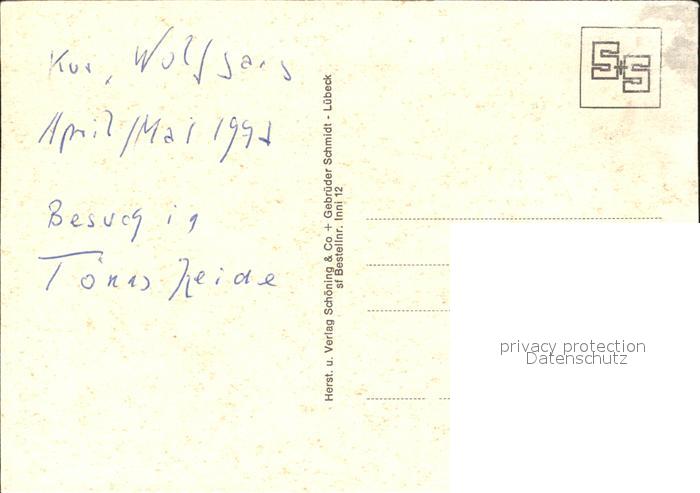 Kur, Wolfgang
April/Mai 1991
Besuch in
Tönns Heide
Herst. u. Verlag Schöning & Co + Gebrüder Schmidt - Lübeck
sf Bestellnr. Inni 12
S+S
privacy protection
Datenschutz